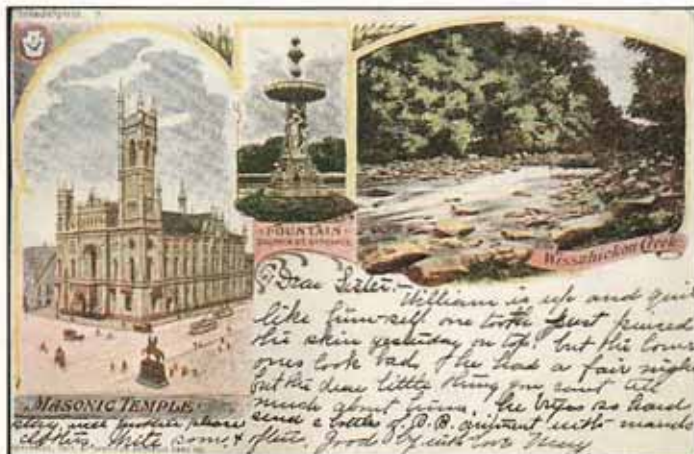 Philadelphia
FOUNTAIN
ENTRANCE
Wissahickon Creek
MASONIC TEMPLE
Dear Sister:-
William is up and quite
like him-self one tooth just pierced
the skin yesterday on top but the lower
ones look bad, he had a fair night
but the dear little thing you cant tell
much about him. he cries so hard
send a bottle of P.B. ointment with mands
clothes. Write some & often. Good by with love Mary